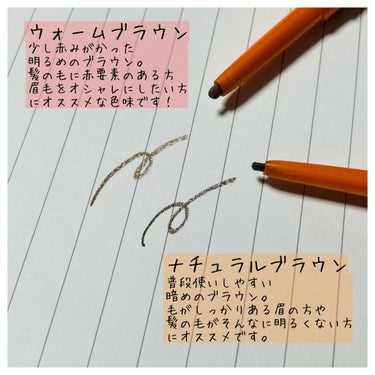 ウォームブラウン
少し赤みがかった
明るめのブラウン。
髪の毛に赤要素のある方
眉毛をオシャレにしたい方
にオススメな色味です！
ナチュラルブラウン
普段使いしやすい
暗めのブラウン。
毛がしっかりある眉の方や
髪の毛がそんなに明るくない方
にオススメです。